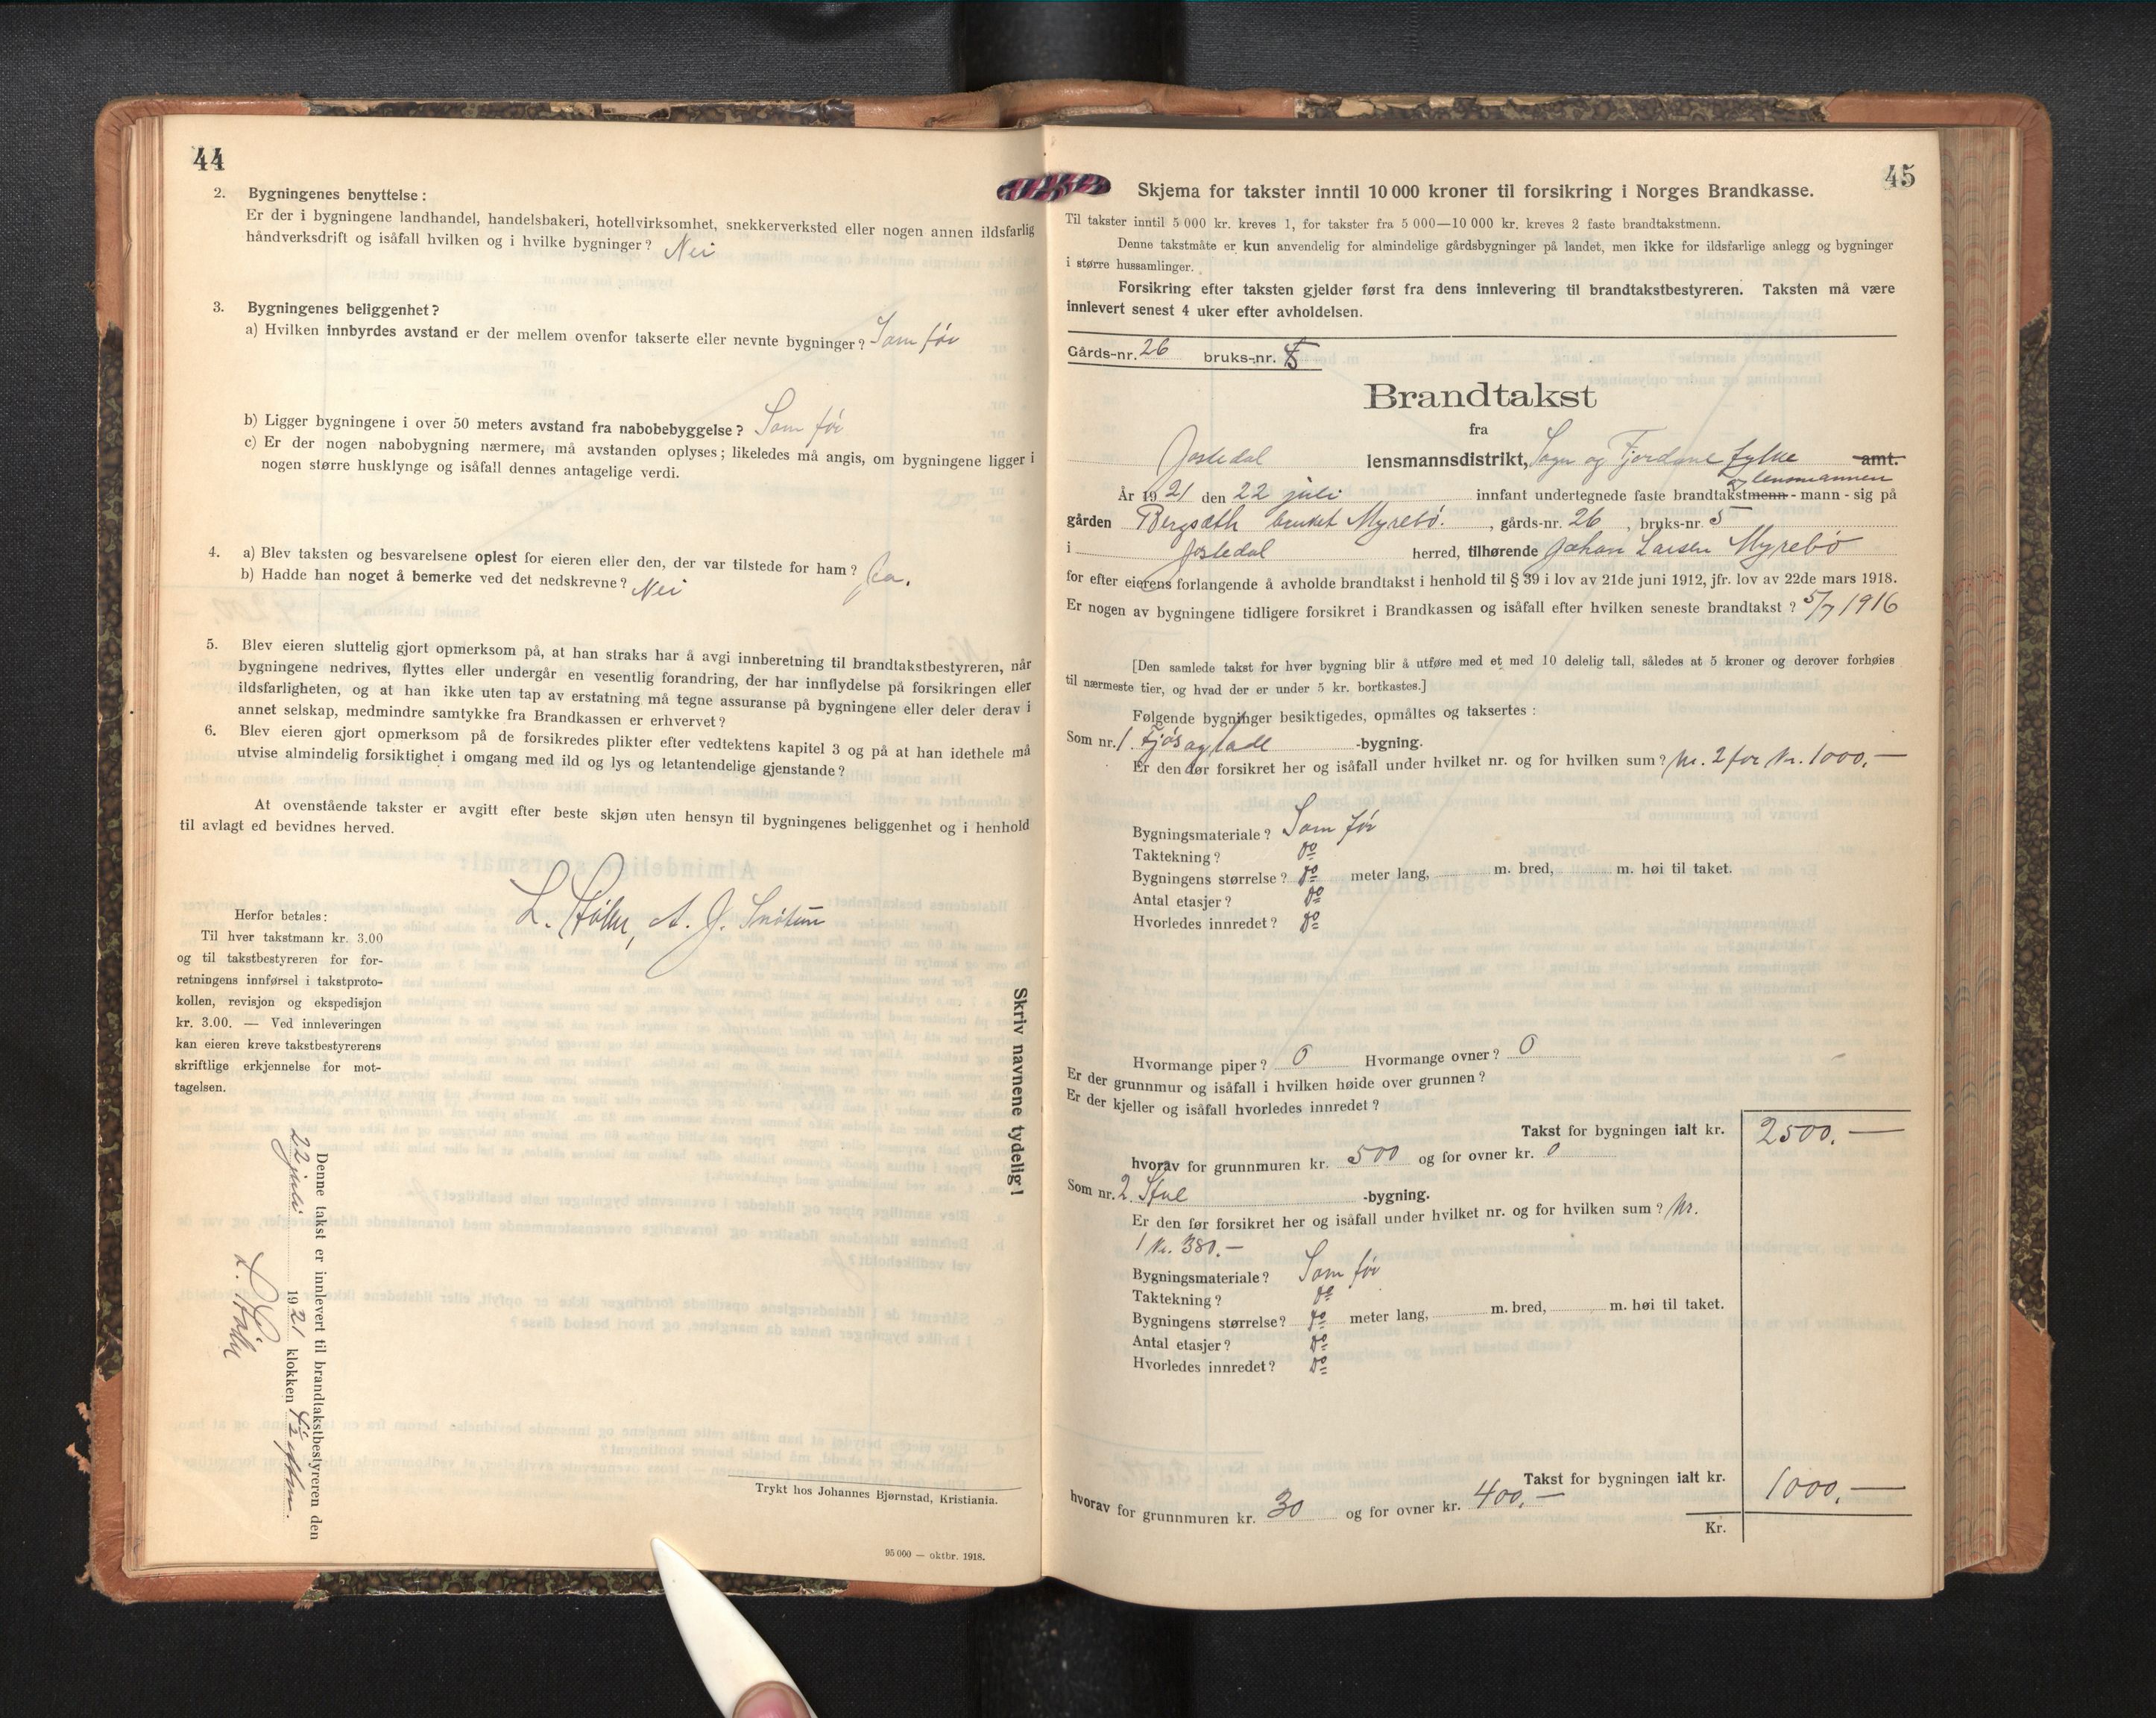 44
2. Bygningenes benyttelse :
Er der i bygningene landhandel, handelsbakeri, hotellvirksomhet, snekkerverksted eller nogen annen ildsfarlig
håndverksdrift og isåfall hvilken og i hvilke bygninger ? Nei
3. Bygningenes beliggenhet ?
a) Hvilken innbyrdes avstand er der mellem ovenfor takserte eller nevnte bygninger ? Som før
b) Ligger bygningene i over 50 meters avstand fra nabobebyggelse ? Som før
c) Er der nogen nabobygning nærmere, må avstanden oplyses ; likeledes må angis, om bygningene ligger i
nogen større husklynge og isåfall dennes antagelige verdi.
4. a) Blev taksten og besvarelsene oplest for eieren eller den, der var tilstede for ham ? Ja.
b) Hadde han noget å bemerke ved det nedskrevne ? Nei
5. Blev eieren sluttelig gjort opmerksom på, at han straks har å avgi innberetning til brandtakstbestyreren, når
bygningene nedrives, flyttes eller undergår en vesentlig forandring, der har innflydelse på forsikringen eller
ildsfarligheten, og at han ikke uten tap av erstatning må tegne assuranse på bygningene eller deler derav i
annet selskap, medmindre samtykke fra Brandkassen er erhvervet ?
6. Blev eieren gjort opmerksom på de forsikredes plikter efter vedtektens kapitel 3 og på at han idethele må
utvise almindelig forsiktighet i omgang med ild og lys og letantendelige gjenstande ?
At ovenstående takster er avgitt efter beste skjøn uten hensyn til bygningenes beliggenhet og i henhold
til avlagt ed bevidnes herved.
L. A. J. Snøtun
Herfor betales :
Til hver takstmann kr. 3.00
og til takstbestyreren for for-
retningens innførsel i takstproto-
kollen, revisjon og ekspedisjon
kr. 3.00. — Ved innleveringen
kan eieren kreve takstbestyrerens
skriftlige erkjennelse for mot-
tagelsen.
Skriv navnene tydelig !
Denne takst er innlevert til brandtakstbestyreren den
22 juli 1921 klokken
L.
Trykt hos Johannes Bjørnstad, Kristiania.
95 000 — oktbr. 1918.
45
Skjema for takster inntil 10 000 kroner til forsikring i Norges Brandkasse.
Til takster inntil 5 000 kr. kreves 1, for takster fra 5 000—10 000 kr. kreves 2 faste brandtakstmenn.
Denne takstmåte er kun anvendelig for almindelige gårdsbygninger på landet, men ikke for ildsfarlige anlegg og bygninger
i større hussamlinger.
Forsikring efter taksten gjelder først fra dens innlevering til brandtakstbestyreren. Taksten må være
innlevert senest 4 uker efter avholdelsen.
Gårds-nr. 26 bruks-nr. 5
Brandtakst
fra
Jostedal lensmannsdistrikt, Sogn og Fjordane fylke amt.
og lensmannen
År 1921 den 22 juli innfant undertegnede faste brandtakstmenn - mann - sig på
gården Bergsæth bruket Myrebø. , gårds-nr. 26 , bruks-nr. 5
i Jostedal herred, tilhørende Johan Larsen Myrebø
for efter eierens forlangende å avholde brandtakst i henhold til § 39 i lov av 21de juni 1912, jfr. lov av 22de mars 1918.
Er nogen av bygningene tidligere forsikret i Brandkassen og isåfall efter hvilken seneste brandtakst ? 5/7 1916
[Den samlede takst for hver bygning blir å utføre med et med 10 delelig tall, således at 5 kroner og derover forhøies
til nærmeste tier, og hvad der er under 5 kr. bortkastes.]
Følgende bygninger besiktigedes, opmåltes og taksertes :
Som nr. 1. Fjøs og lade -bygning.
Er den før forsikret her og isåfall under hvilket nr. og for hvilken sum ? Nr. 2 for Kr. 1000,—
Bygningsmateriale ? Som før
Taktekning ? do
Bygningens størrelse ? do meter lang, m. bred, m. høi til taket.
Antal etasjer ? do
Hvorledes innredet ? do
Hvormange piper ? 0 Hvormange ovner ? 0
Er der grunnmur og isåfall i hvilken høide over grunnen ?
Er der kjeller og isåfall hvorledes innredet ?
Takst for bygningen ialt kr. 2500.—
hvorav for grunnmuren kr. 500 og for ovner kr. 0
Som nr. 2. Stue -bygning.
Er den før forsikret her og isåfall under hvilket nr. og for hvilken sum ? Nr.
1 Kr. 380.—
Bygningsmateriale ? Som før
Taktekning ? do
Bygningens størrelse ? do meter lang, m. bred, m. høi til taket.
Antal etasjer ? do
Hvorledes innredet ? do
Takst for bygningen ialt kr. 1000.—
hvorav for grunnmuren kr. 30 og for ovner kr. 400.—
Kr.